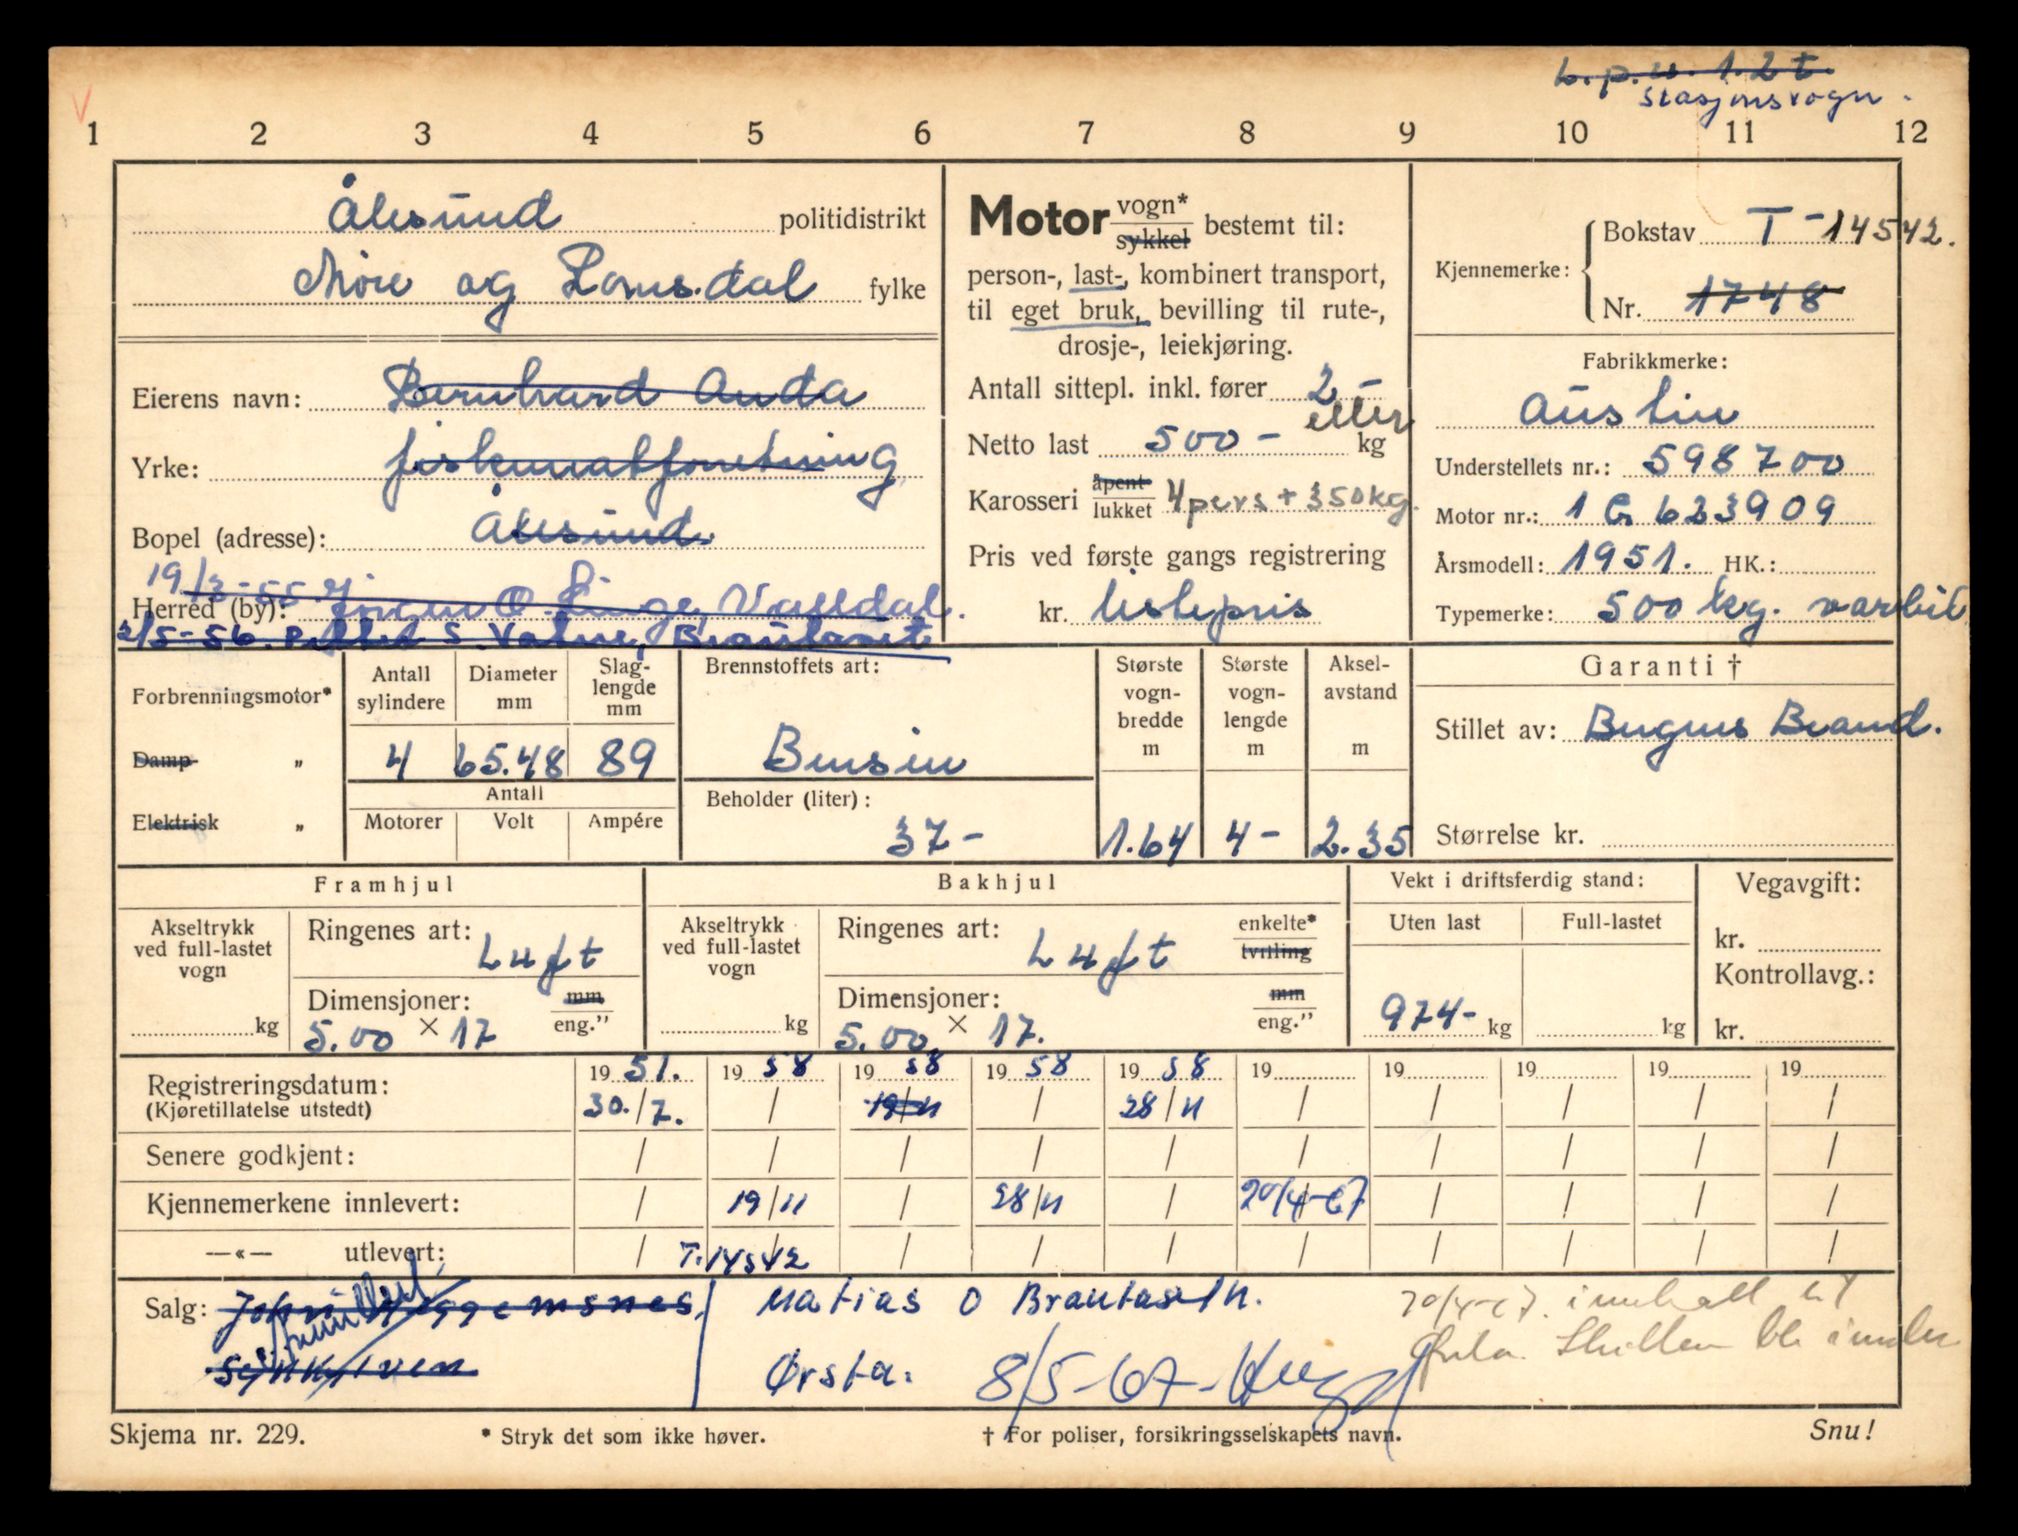 L.p.u. 1.2 t.
Stasjonsvogn.
V
1 2 3 4 5 6 7 8 9 10 11 12
Ålesund politidistrikt
Møre og Romsdal fylke
Eierens navn: Bernhard Anda
Yrke: fiskematforretning
Bopel (adresse): Ålesund
19/3-55.
Herred (by): Jørgen O. Linge, Valldal.
2/5-56. Petter S. Vatne, Brautaset
Motor vogn* sykkel bestemt til:
person-, last-, kombinert transport,
til eget bruk, bevilling til rute-,
drosje-, leiekjøring.
Antall sittepl. inkl. fører 2 –
eller
Netto last 500 – kg
Karosseri åpent lukket 4 pers + 350 kg.
Pris ved første gangs registrering
kr. listepris
Kjennemerke: Bokstav T - 14542.
Nr. 1748
Fabrikkmerke:
Austin
Understellets nr.: 598700
Motor nr.: 1 G 623909
Årsmodell: 1951. HK.:
Typemerke: 500 kg. varebil
Forbrenningsmotor*
Damp- „
Elektrisk „
Antall sylindere Diameter mm Slag-lengde mm
4 65.48 89
Antall
Motorer Volt Ampére
Brennstoffets art:
Bensin
Beholder (liter):
37 –
Største vogn-bredde m Største vogn-lengde m Aksel-avstand m
1.64 4 – 2.35
Garanti †
Stillet av: Bugnes Brand.
Størrelse kr.
Framhjul
Akseltrykk ved full-lastet vogn
kg
Ringenes art: Luft
Dimensjoner: mm eng.”
5.00 × 17
Bakhjul
Akseltrykk ved full-lastet vogn
kg
Ringenes art: Luft enkelte* tvilling
Dimensjoner: mm eng.”
5.00 × 17.
Vekt i driftsferdig stand:
Uten last Full-lastet
974- kg kg
Vegavgift:
kr.
Kontrollavg.:
kr.
Registreringsdatum: 19 51. 19 58 19 58 19 58 19 58 19 19 19 19 19
(Kjøretillatelse utstedt) 30./7. / 19/11 / 28/11 / / / / /
Senere godkjent: / / / / / / / / / /
Kjennemerkene innlevert: / 19/11 / 28/11 / 20/4-67 / / / /
—«— utlevert: / T.14542 / / / / / / / /
Salg: John Heggemsnes. Matias O Brautaseth.
Synnulven
Ørsta. 8/5-67-
20/4-67. innkalt
Ørsta. Skilten ble innlev
Skjema nr. 229. * Stryk det som ikke høver. † For poliser, forsikringsselskapets navn. Snu!